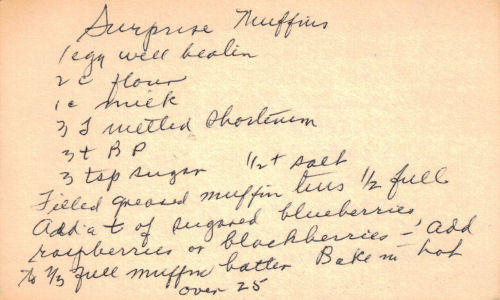 Surprise Muffins
1 egg well beatin
2 c flour
1 c milk
3 T melted shortenin
3 t B P
3 tsp sugar 1/2 t salt
Filled greased muffin tins 1/2 full
Add a t of sugared blueberries
raspberries or blackberries - add
to 2/3 full muffin batter Bake in hot
oven 25